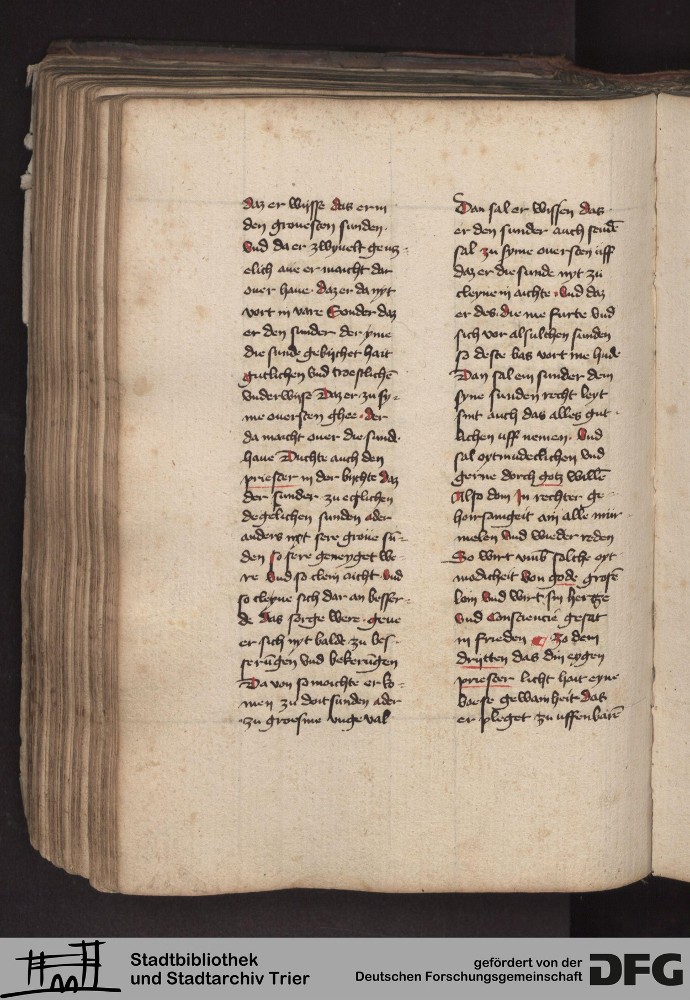 daz er wijsse das er in
den grouesten sunden
Vnd da er zwyuelt genz
elich aue er maicht dar
ouer haue. daz er da nyt
vort in vare Sonder daz
er den sunder der yme
die sunde gebijchet hait
gutlichen vnd troestlichē
vnderwijse Daz er zu sy
me ouersten ghee. der
da maicht ouer die sund
haue Duchte auch den
priester in der bijchte daz
der sunder zu etzlichen
degelichen sunden ader
anders nyt sere groue sū
den so sere geneyget we
re vnd so clein aicht vnd
so cleyne sich dar an besser
de das sorge were. geue
er sich nyt balde zu bes
serūgen vnd bekerūgen
Da von so moichte er ko
men zu doitsunden ader
zu groesme vngeual
Dan sal er wissen das
er den sunder auch sendē
sal zu syme ouersten uff
daz er die sunde nyt zu
cleyne in aichte. Vnd daz
er des die me furte vnd
sich vor alsulchen sunden
so deste bas vort me hude
Dan sal ein sunder dem
syne sunden recht leyt
sint auch das alles gut
lichen uff nemen. Vnd
sal oytmudeclichen vnd
gerne dorch gotz willē
Also don In rechter ge
horrsamgeit ain alle mur
melen vnd wieder reden
So wirt vmb solche oyt
modicheit von gode grosē
loin vnd wirt sin hertze
vnd Consciencie gesat
in frieden Zo dem
drijtten das din eygen
priester licht hait eyne
boese gewainheit das
er pleget zu uffenbarē
Stadtbibliothek
und Stadtarchiv Trier
gefördert von der
Deutschen Forschungsgemeinschaft
DFG